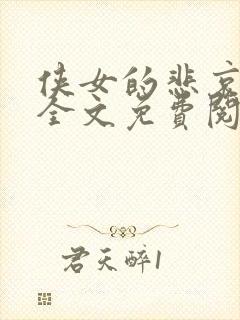 侠女的悲哀
全文免费阅
君天醉1